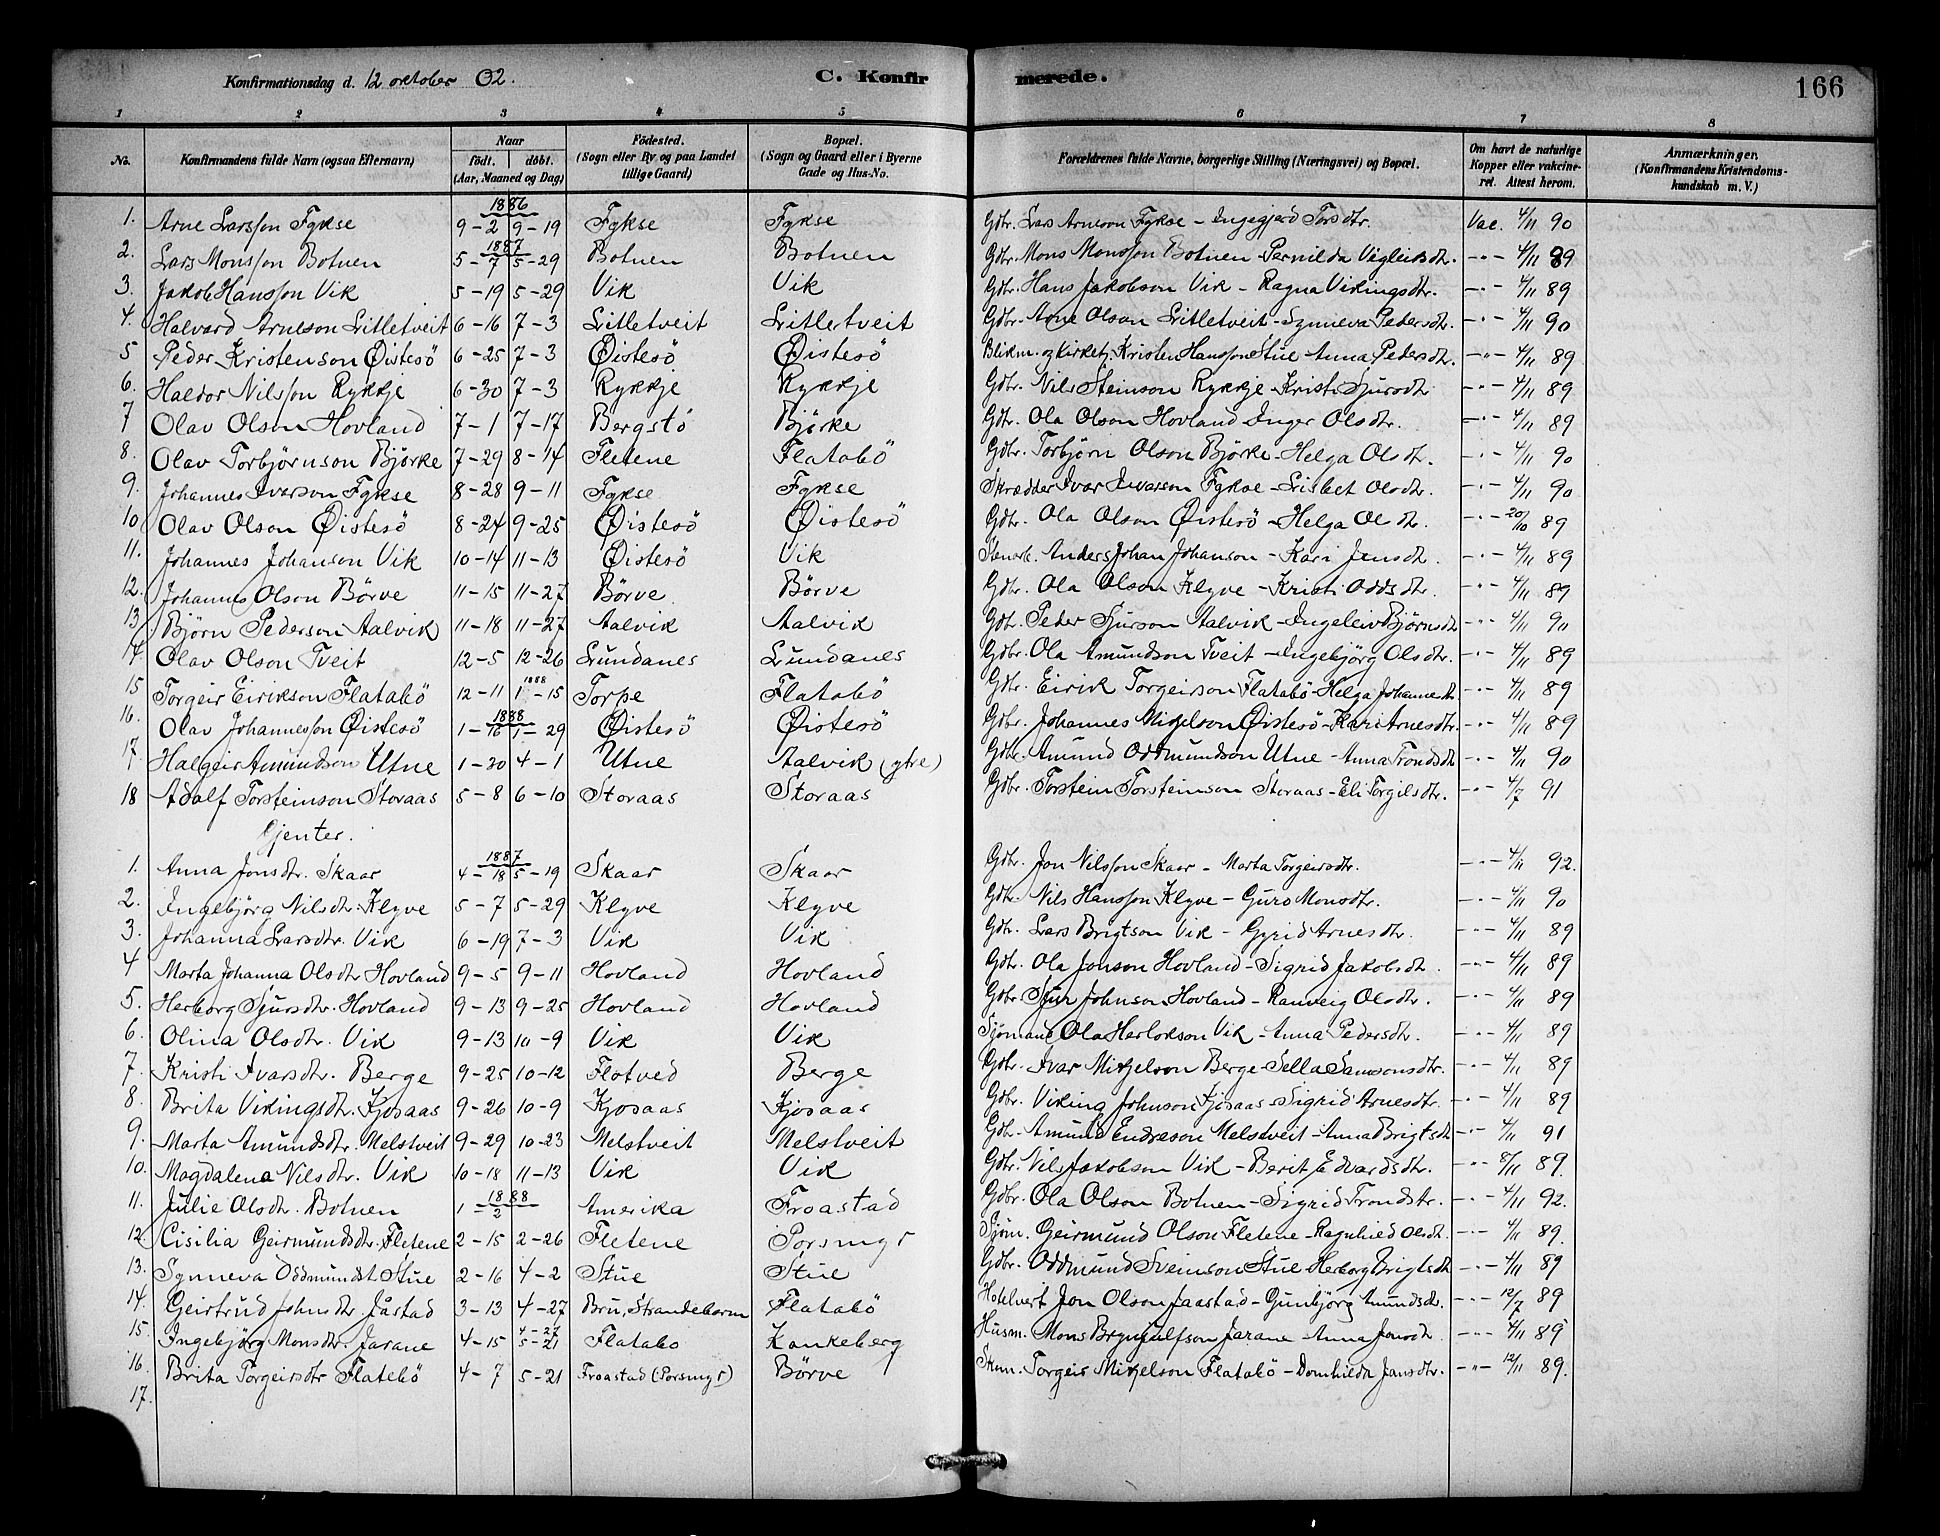 Konfirmationsdag d. 12 oktober 02. C. Konfirmerede. 166
1 2 3 4 5 6 7 8
No. Konfirmandens fulde Navn (ogsaa Efternavn) Naar födt. döbt. (Aar, Maaned og Dag) Födested. (Sogn eller By og paa Landet tillige Gaard) Bopæl. (Sogn og Gaard eller i Byerne Gade og Hus-No. Forældrenes fulde Navne, borgerlige Stilling (Næringsvei) og Bopæl. Om havt de naturlige Kopper eller vakcineret. Attest herom. Anmærkninger. (Konfirmandens Kristendomskundskab m. V.)
1886
1. Arne Larsson Fykse 9-2 9-19 Fykse Fykse Gdbr. Lars Arneson Fykse - Ingegjerd Torsdtr. Vac. 4/11 90
1887
2. Lars Monsson Botnen 5-7 5-29 Botnen Botnen Gdbr. Mons Monsson Botnen - Pernilda Vigleiksdtr. -"- 4/11 89
3. Jakob Hansson Vik 5-19 5-29 Vik Vik Gdbr. Hans Jakobson Vik - Ragna Vikingsdtr. -"- 4/11 89
4. Halvard Arneson Litletveit 6-16 7-3 Litletveit Litletveit Gdbr. Arne Olson Litletveit - Synneva Pedersdtr. -"- 4/11 90
5 Peder Kristenson Øistesö 6-25 7-3 Øistesö Øistesö Blikm. og Kirketj. Kristen Hansson Stue Anna Pedersdtr. -"- 4/11 89
6. Haldor Nilsson Rykkje 6-30 7-3 Rykkje Rykkje Gdbr. Nils Steinson Rykkje - Kristi Sjursdtr -"- 4/11 89
7 Olav Olson Hovland 7-1 7-17 Bergstö Björke Gdbr. Ola Olson Hovland Inger Olsdtr. -"- 4/11 89
8. Olav Torbjörnson Björke 7-29 8-14 Fletene Flatabö Gdbr. Torbjörn Olson Björke - Helga Olsdtr. -"- 4/11 90
9. Johannes Ivarson Fykse 8-28 9-11 Fykse Fykse Skrædder Ivar Ivarson Fykse - Lisbet Olsdtr. -"- 4/11 90
10. Olav Olson Øistesö 8-24 9-25 Øistesö Øistesö Gdbr. Ola Olson Øistesö - Helga Olsdtr. -"- 20/10 89
11. Johannes Johanson Vik 10-14 11-13 Øistesö Vik Stenarb. Anders Johan Johanson - Kari Jensdtr. -"- 4/11 89
12. Johannes Olson Börve 11-15 11-27 Börve Börve Gdbr. Ola Olson Klyve - Kristi Oddsdtr. -"- 4/11 89
13 Björn Pederson Aalvik 11-18 11-27 Aalvik Aalvik Gdbr. Peder Sjurson Aalvik - Ingeleiv Björnsdtr -"- 4/11 90
14. Olav Olson Tveit 12-5 12-26 Lundanes Lundanes Gdbr. Ola Amundson Tveit - Ingebjörg Olsdtr. -"- 4/11 89
15 Torgeir Eirikson Flatabö 12-11 1888 1-15 Torpe Flatabö Gdbr. Eirik Torgeirson Flatabö - Helga Johannesdtr -"- 4/11 89
1888
16. Olav Johannesson Øistesö 1-16 1-29 Øistesö Øistesö Gdbr. Johannes Mikjelson Øistesö - Kari Arnesdtr. -"- 4/11 89
17. Halgeir Amundson Utne 1-30 4-1 Utne Aalvik (ytre) Gdbr. Amund Oddmundson Utne - Anna Trondsdtr -"- 4/11 90
18 Adolf Torsteinson Storaas 5-8 6-10 Storaas Storaas Gdbr. Torstein Torsteinson Storaas - Eli Torgilsdtr. -"- 4/7 91
Gjenter.
1887
1. Anna Jonsdtr. Skaar 4-18 5-19 Skaar Skaar Gdbr. Jon Nilsson Skaar - Marta Torgeirsdtr. -"- 4/11 92.
2. Ingebjörg Nilsdtr. Klyve 5-7 5-29 Klyve Klyve Gdbr. Nils Hansson Klyve - Guro Monsdtr. -"- 4/11 90
3. Johanna Larsdtr. Vik 6-19 7-3 Vik Vik Gdbr. Lars Brigtson Vik - Gyrid Arnesdtr. -"- 4/11 89
4 Marta Johanna Olsdtr Hovland 9-5 9-11 Hovland Hovland Gdbr. Ola Jonson Hovland - Sigrid Jakobsdtr. -"- 4/11 89
5. Herborg Sjursdtr. Hovland 9-13 9-25 Hovland Hovland Gdbr. Sjur Johnson Hovland - Ranveig Olsdtr. -"- 4/11 89
6. Olina Olsdtr. Vik 9-13 10-9 Vik Vik Sjömand Ola Herlokson Vik - Anna Pedersdtr. -"- 4/11 89
7. Kristi Ivarsdtr. Berge 9-25 10-12 Flotved Berge Gdbr. Ivar Mikjelson Berge - Sella Samsonsdtr. -"- 4/11 89
8. Brita Vikingsdtr. Kjosaas 9-26 10-9 Kjosaas Kjosaas Gdbr. Viking Johnson Kjosaas Sigrid Arnesdtr. -"- 4/11 89
9. Marta Amundsdtr. Melstveit 9-29 10-23 Melstveit Melstveit Gdbr. Amund Endreson Melstveit - Anna Brigtsdtr -"- 4/11 91
10. Magdalena Nilsdtr. Vik 10-18 11-13 Vik Vik Gdbr. Nils Jakobson Vik - Berit Edvardsdtr. -"- 8/11 89.
11. Julie Olsdtr. Botnen 1888 1-2 Amerika Froastad Gdbr. Ola Olson Botnen - Sigrid Trondsdtr. -"- 4/11 92.
12. Cisilia Geirmundsdtr. Fletene 2-15 2-26 Fletene Porsmyr Sjöm. Geirmund Olson Fletene - Ragnhied Olsdtr. -"- 4/11 89.
13. Synneva Oddmundsdt. Stue 2-16 4-2 Stue Stue Gdbr. Oddmund Sveinson Stue Herborg Brigtsdtr -"- 4/11 89
14. Geirtrud Johnsdtr. Jåstad 3-13 4-27 Bru, Strandebarm Flatabö Hotelvert Jon Olson Jaastad - Gunbjörg Amundsdtr. -"- 12/7 89
15. Ingebjörg Monsdtr. Jarane 4-15 4-27 5-21 Flatabo Kankeberg Husm. Mons Brynjulfson Jarane - Anna Jonsdtr. -"- 4/11 89
16. Brita Torgeirsdtr Flatebö 4-7 5-21 Froastad (Porsmyr) Börve Torgeir Mikjelson Flatabö - Domhilda Jansdtr. -"- 12/11 89.
17.